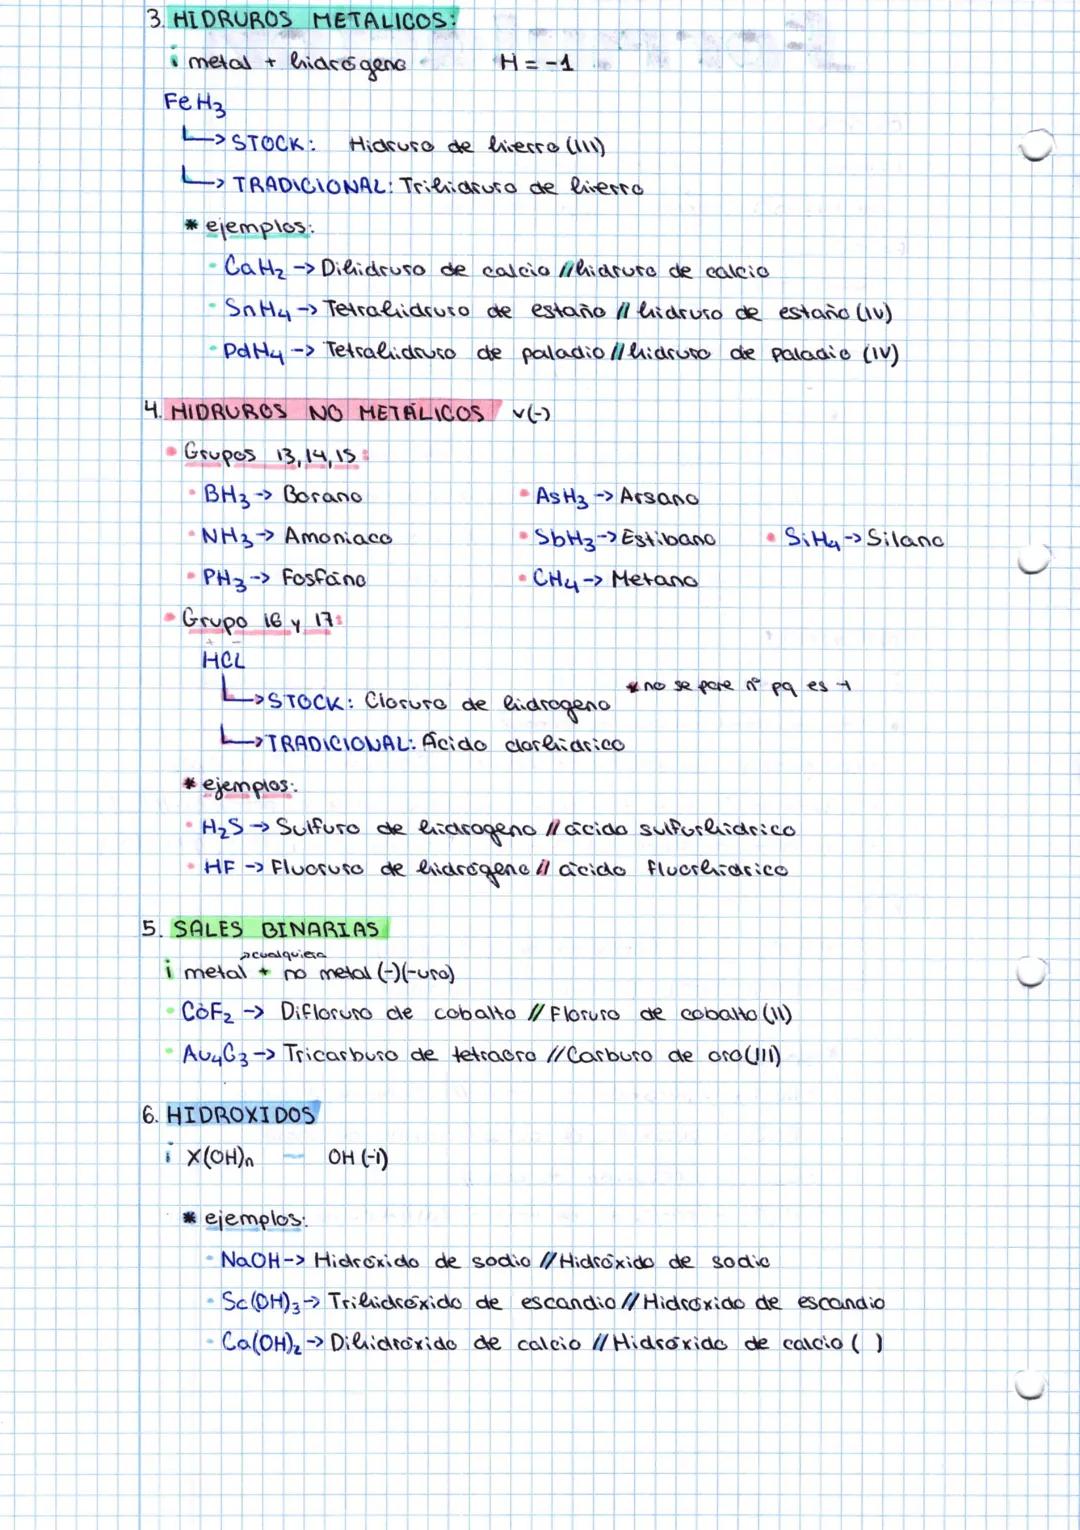 3. HIDRUROS METALICOS:
i metal + hidrógeno H = -1
FeH3
↳ STOCK: Hidruro de hierro (III)
↳ TRADICIONAL: Trihidruro de hierro
* ejemplos:
· CaH2 -> Dihidruro de calcio // hidruro de calcio
· SnH4 -> Tetrahidruro de estaño // hidruro de estaño (IV)
· PdH4 -> Tetrahidruro de paladio // hidruro de paladio (IV)
4. HIDRUROS NO METÁLICOS v(-)
• Grupos 13, 14, 15:
· BH3 -> Borano • AsH3 -> Arsano
· NH3 -> Amoniaco • SbH3 -> Estibano • SiH4 -> Silano
· PH3 -> Fosfano • CH4 -> Metano
• Grupo 16 y 17:
+ -
HCL
↳ STOCK: Cloruro de hidrogeno * no se pone nº pq es +1
↳ TRADICIONAL: Ácido clorhidrico
* ejemplos:
· H2S -> Sulfuro de hidrogeno // ácido sulfurhidrico
· HF -> Fluoruro de hidrógeno // ácido fluorhidrico
5. SALES BINARIAS
↗cualquiera
i metal + no metal (-)(-uro)
· CoF2 -> Difloruro de cobalto // Floruro de cobalto (II)
· Au4C3 -> Tricarburo de tetraoro // Carburo de oro (III)
6. HIDROXIDOS
i X(OH)n — OH (-1)
* ejemplos:
· NaOH -> Hidróxido de sodio // Hidróxido de sodio
· Sc(OH)3 -> Trihidróxido de escandio // Hidróxido de escandio
· Ca(OH)2 -> Dihidróxido de calcio // Hidróxido de calcio ( )